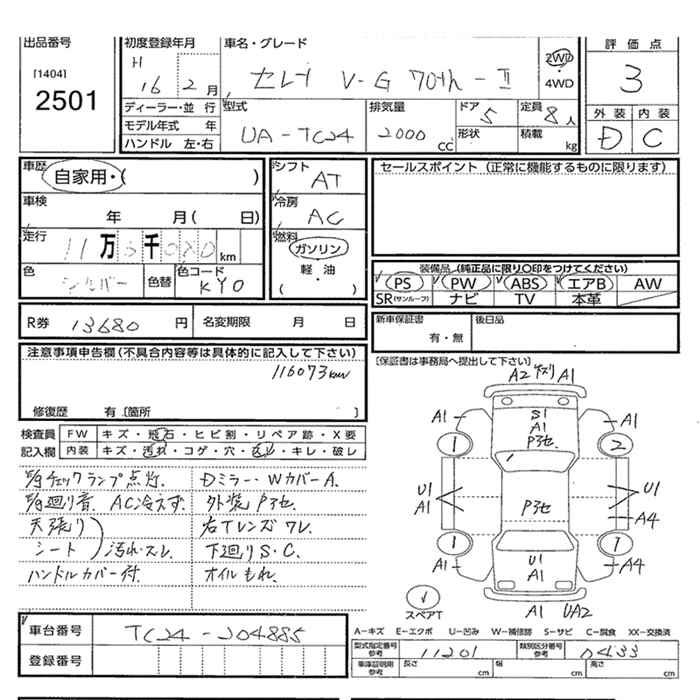 出品番号
[1404]
2501
初度登録年月
H 16 2 月
ディーラー・並 行
モデル年式 年
ハンドル 左・右
車名・グレード
セレナ V-G 70th-II
2WD
4WD
型式
UA-TC24
排気量
2000 CC
ドア 5
形状
定員 8 人
積載 kg
評 価 点
3
外 装 内 装
D C
車歴
自家用・( )
車検
年 月( 日)
走行
11 万 千 km
色
シルバー
色替
色コード
KY0
シフト
AT
冷房
AC
燃料
ガソリン
軽・油
( )
セールスポイント (正常に機能するものに限ります)
装備品 (純正品に限り○印をつけてください)
PS PW ABS エアB AW
SR(サンルーフ) ナビ TV 本革
R券 13680 円
名変期限 月 日
新車保証書
有・無
後日品
[保証書は事務局へ提出して下さい]
注意事項申告欄(不具合内容等は具体的に記入して下さい)
116073km
修復歴 有 [箇所 ]
検査員 FW キズ・飛石・ヒビ割・リペア跡・X要
記入欄 内装 キズ・汚れ・コゲ・穴・スレ・キレ・破レ
E/gチェックランプ点灯. Dミラー・WカバーA.
E/g廻り音. AC冷えず. 外装P3セ.
天張り 右Tレンズワレ.
シート )汚れ・スレ. 下廻りS・C.
ハンドルカバー付. オイルもれ.
A2 ｹｽﾞﾘ A1
A1 S1 A1
A1
P3セ
1 2
U1 A1 P3セ U1
A4
1 1
A1 U1 A4
A1
スペアT
A1 UA2
車台番号 TC24-204885
登録番号
A−キズ E−エクボ U−凹み W−補修跡 S−サビ C−腐食 XX−交換済
型式指定番号 参考 11201
類別区分番号 参考 0433
車庫証明用 参考
長さ cm
幅 cm
高さ cm